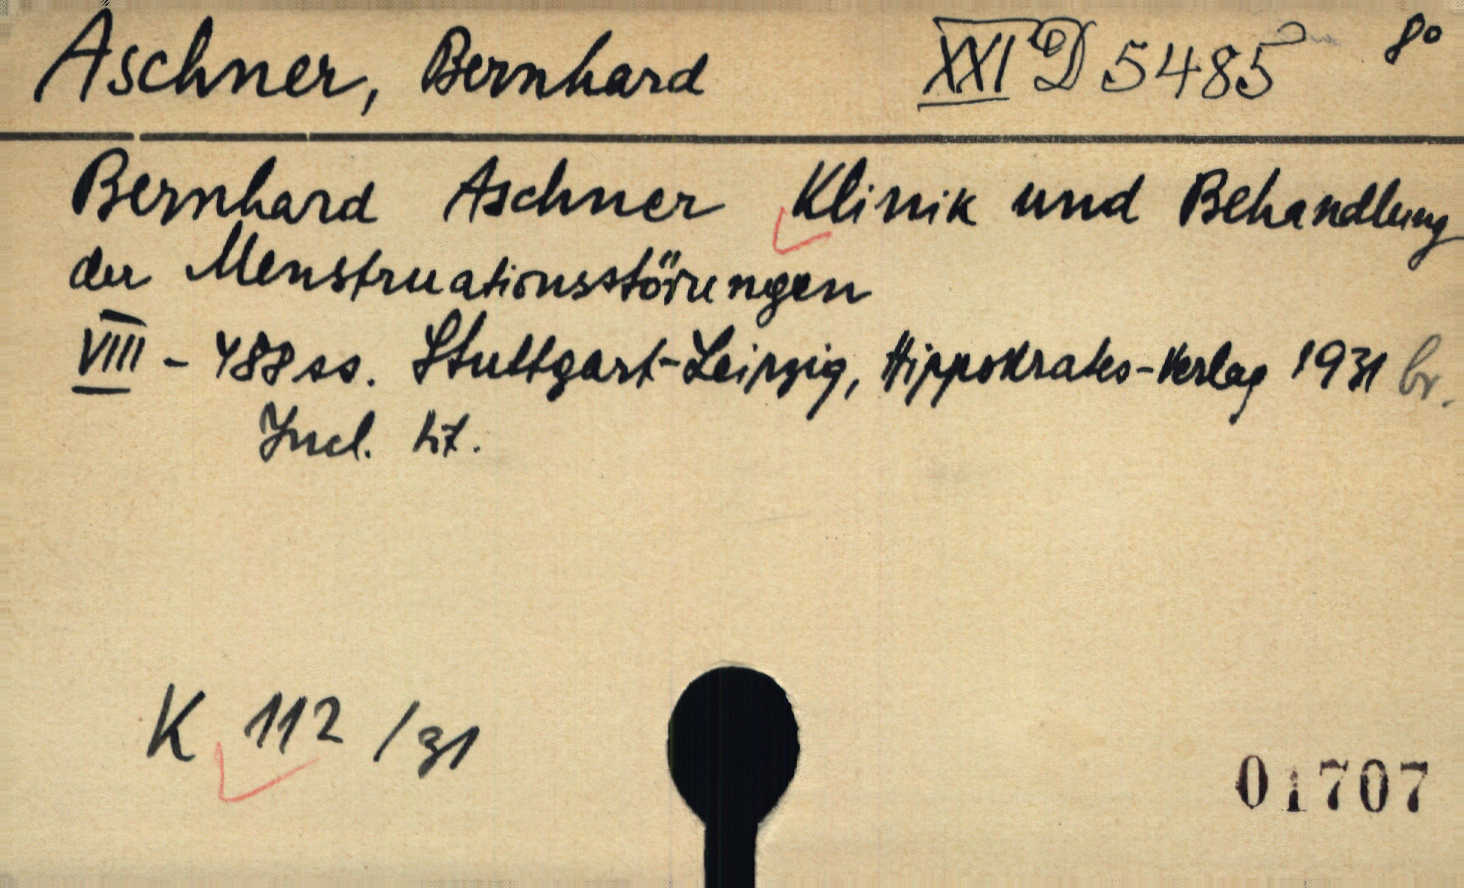 Aschner, Bernhard XXI D 5485 8°
Bernhard Aschner Klinik und Behandlung
der Menstruationsstörungen
VIII - 488 ss. Stuttgart-Leipzig, Hippokrates-Verlag 1931 br.
Incl. lit.
K 112 /31
01707